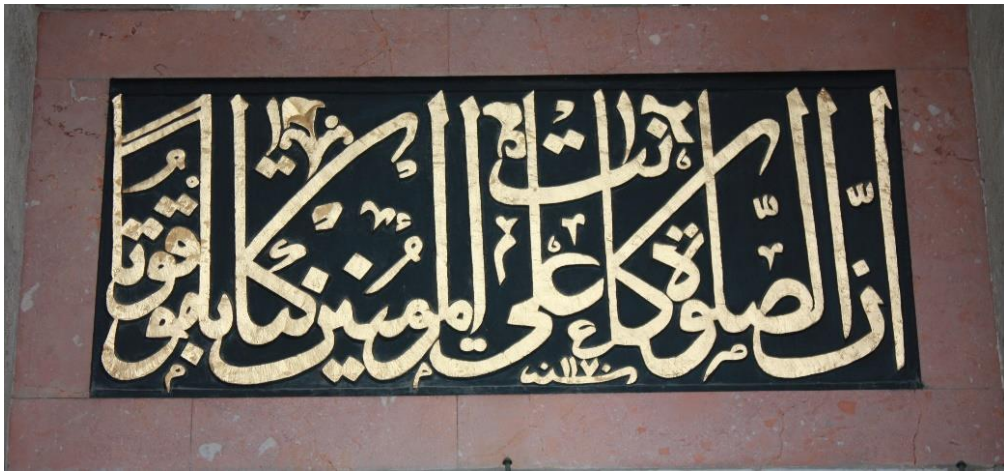 إنّ الصّلوة كانت على المؤمنين كتابا موقوتا
سنة ١١٧٠